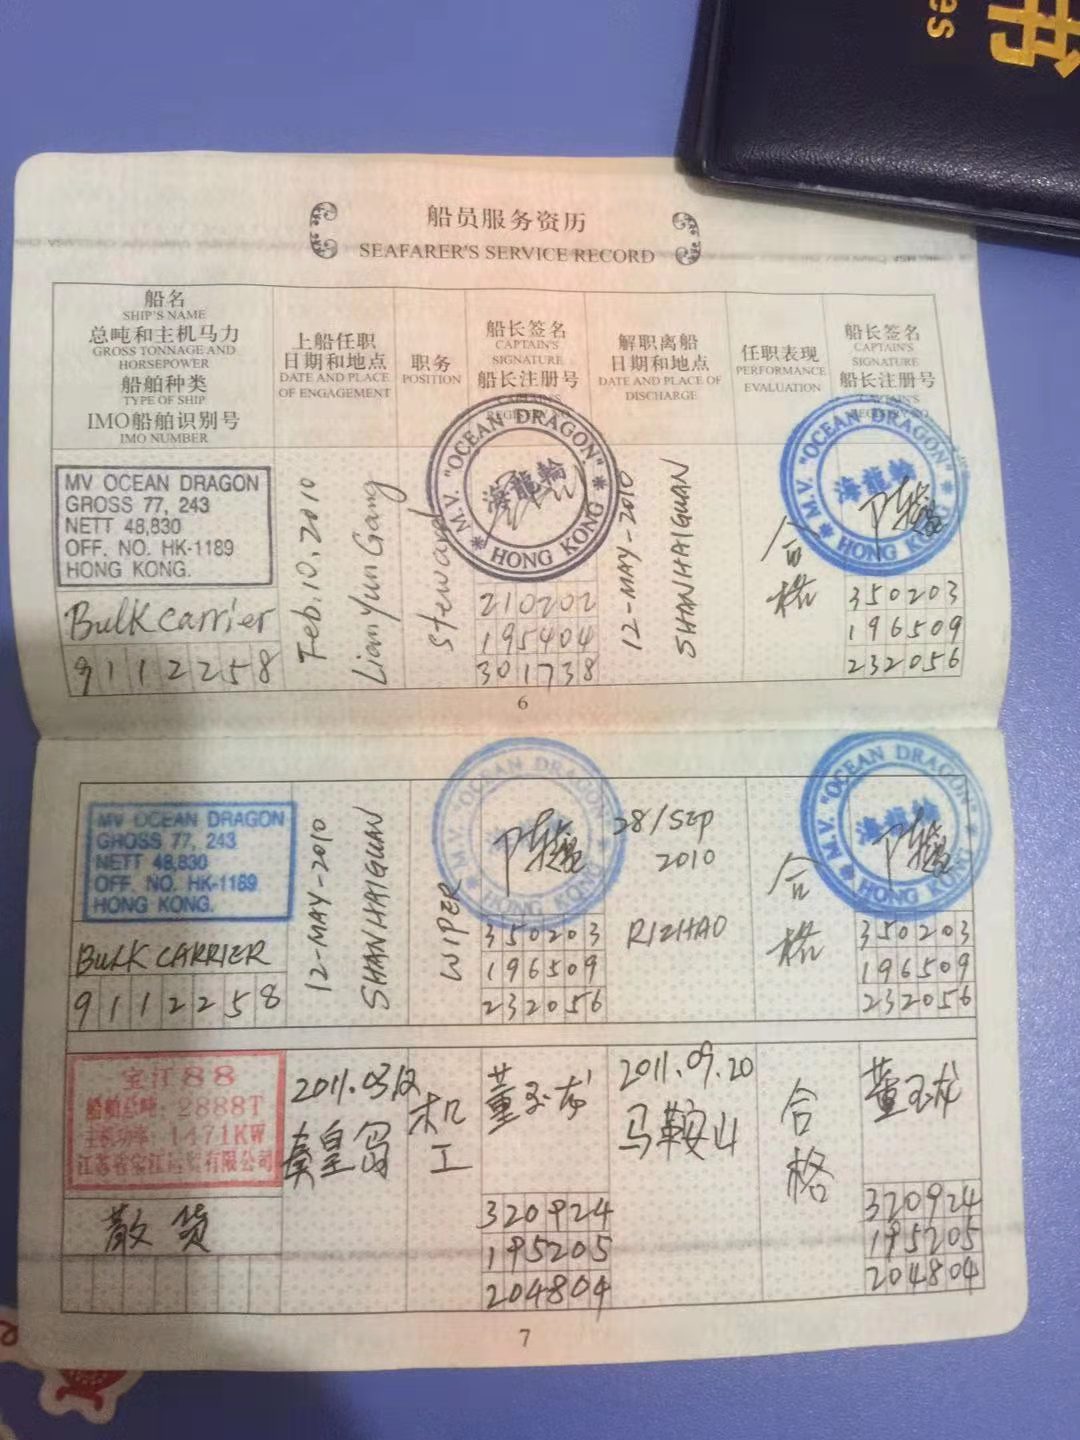 书
es
船员服务资历
SEAFARER'S SERVICE RECORD
船名
SHIP'S NAME
总吨和主机马力
GROSS TONNAGE AND
HORSEPOWER
船舶种类
TYPE OF SHIP
IMO船舶识别号
IMO NUMBER
上船任职
日期和地点
DATE AND PLACE
OF ENGAGEMENT
职务
POSITION
船长签名
CAPTAIN'S
SIGNATURE
船长注册号
CAPTAIN'S
REGISTRY NO.
解职离船
日期和地点
DATE AND PLACE OF
DISCHARGE
任职表现
PERFORMANCE
EVALUATION
船长签名
CAPTAIN'S
SIGNATURE
船长注册号
CAPTAIN'S
REGISTRY NO.
MV OCEAN DRAGON
GROSS 77, 243
NETT 48,830
OFF. NO. HK-1189
HONG KONG.
Bulk carrier
9112258
Feb.10.2010
LianYunGang
steward
M.V. "OCEAN DRAGON"
海龍輪
HONG KONG
210202
195404
301738
12-MAY-2010
SHANHAIGUAN
合格
M.V. "OCEAN DRAGON"
海龍輪
HONG KONG
350203
196509
232056
6
MV OCEAN DRAGON
GROSS 77, 243
NETT 48,830
OFF. NO. HK-1189
HONG KONG.
BULK CARRIER
9112258
12-MAY-2010
SHANHAIGUAN
WIPER
M.V. "OCEAN DRAGON"
HONG KONG
350203
196509
232056
28/SEP
2010
RIZHAO
合格
M.V. "OCEAN DRAGON"
海龍輪
HONG KONG
350203
196509
232056
宝江88
船舶总吨:2888T
主机功率:1471KW
江苏省宝江运贸有限公司
散货
秦皇岛
机工
董玉龙
320924
195205
204804
2011.09.20
马鞍山
合格
董玉龙
320924
195205
204804
7